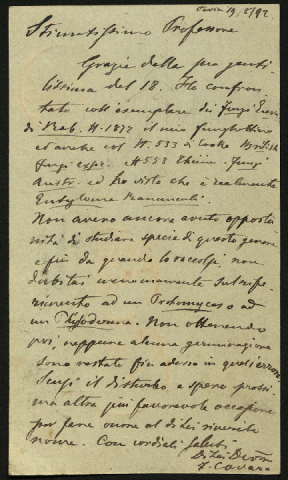 Pavia 19/5/92
Stimatissimo Professore
Grazie della sua genti-
lissima del 18. Ho confron-
tato coll'esemplare dei Fungi Euro.
di Rab. N. 1872 il mio funghettino
ed anche col N. 533 di Cooke British
Fungi exsic. e N 553 Thüm. Fungi
Austr. ed ho visto che è realmente
Entyloma Ranunculi.
Non avevo ancora avuto opportu-
nità di studiare specie di questo genere
e fin da quando lo raccolsi, non
dubitai menomamente sul rife-
rimento ad un Protomyces o ad
un Physoderma. Non ottenendo
poi, neppure alcuna germinazione
sono restato fin adesso in quell'errore.
Scusi il disturbo e spero prossi-
ma altra più favorevole occasione
per fare onore al di Lei riverito
nome. Con cordiali saluti
Di Lei Devotmo
F. Cavara